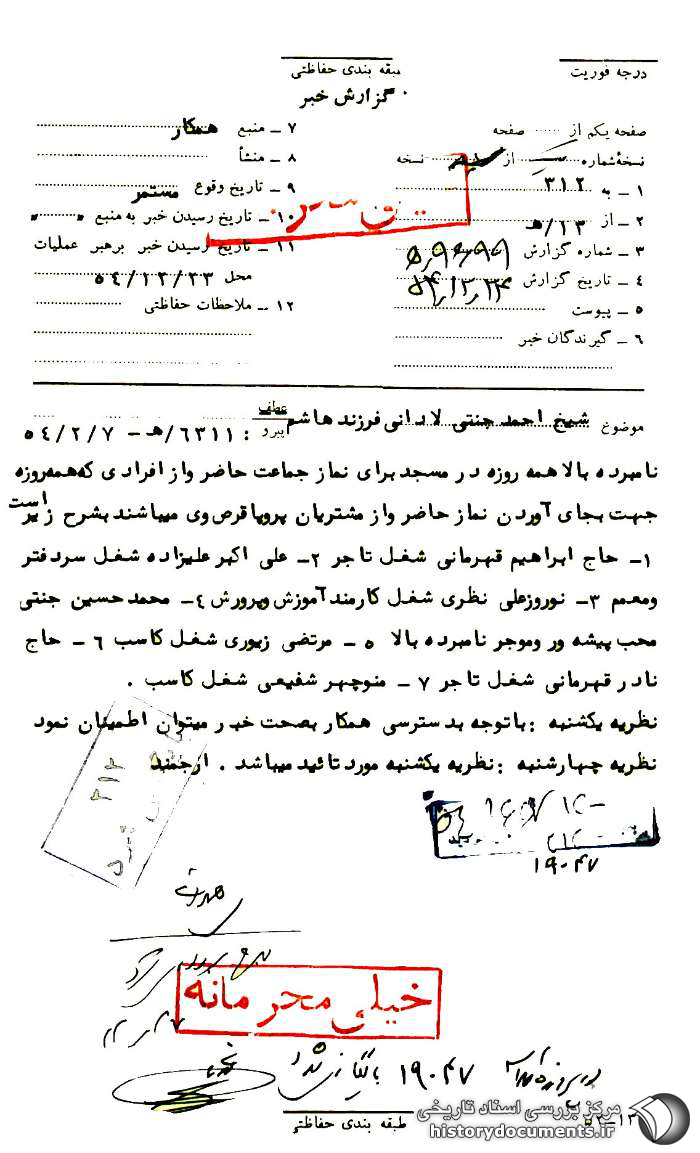 درجه فوریت
طبقه بندی حفاظتی
گزارش خبر
صفحه یکم از ...... صفحه
نسخهٔ شماره ...... از ...... نسخه
۱ – به ۳۱۲
۲ – از ۱۳/هـ
۳ – شماره گزارش
۴ – تاریخ گزارش ۵۴٫۱۲٫۲۴
۵ – پیوست
۶ – گیرندگان خبر
۷ – منبع همکار
۸ – منشأ
۹ – تاریخ وقوع مستمر
۱۰ – تاریخ رسیدن خبر به منبع " "
۱۱ – تاریخ رسیدن خبر برهبر عملیات
محل ۵۴/۱۲/۲۳
۱۲ – ملاحظات حفاظتی
موضوع شیخ احمد جنتی لادانی فرزند هاشم
عطف
پیرو : ۶۳۱۱/هـ – ۵۴/۲/۷
نامبرده بالا همه روزه در مسجد برای نماز جماعت حاضر و از افرادی که همه روزه
جهت بجای آوردن نماز حاضر و از مشتریان پروپاقرص وی میباشند بشرح زیر است
۱– حاج ابراهیم قهرمانی شغل تاجر ۲– علی اکبر علیزاده شغل سردفتر
ومعمم ۳– نوروزعلی نظری شغل کارمند آموزش وپرورش ۴– محمد حسین جنتی
محب پیشه ور وموجر نامبرده بالا ۵ – مرتضی زیوری شغل کاسب ۶ – حاج
نادر قهرمانی شغل تاجر ۷ – منوچهر شفیعی شغل کاسب .
نظریه یکشنبه : باتوجه بدسترسی همکار بصحت خبر میتوان اطمینان نمود
نظریه چهارشنبه : نظریه یکشنبه مورد تائید میباشد . ارجمند
۳۱۲
۱۹۰۴۷
خیلی محرمانه
۱۹۰۴۷ بایگانی شود
طبقه بندی حفاظتی
مرکز بررسی اسناد تاریخی
historydocuments.ir